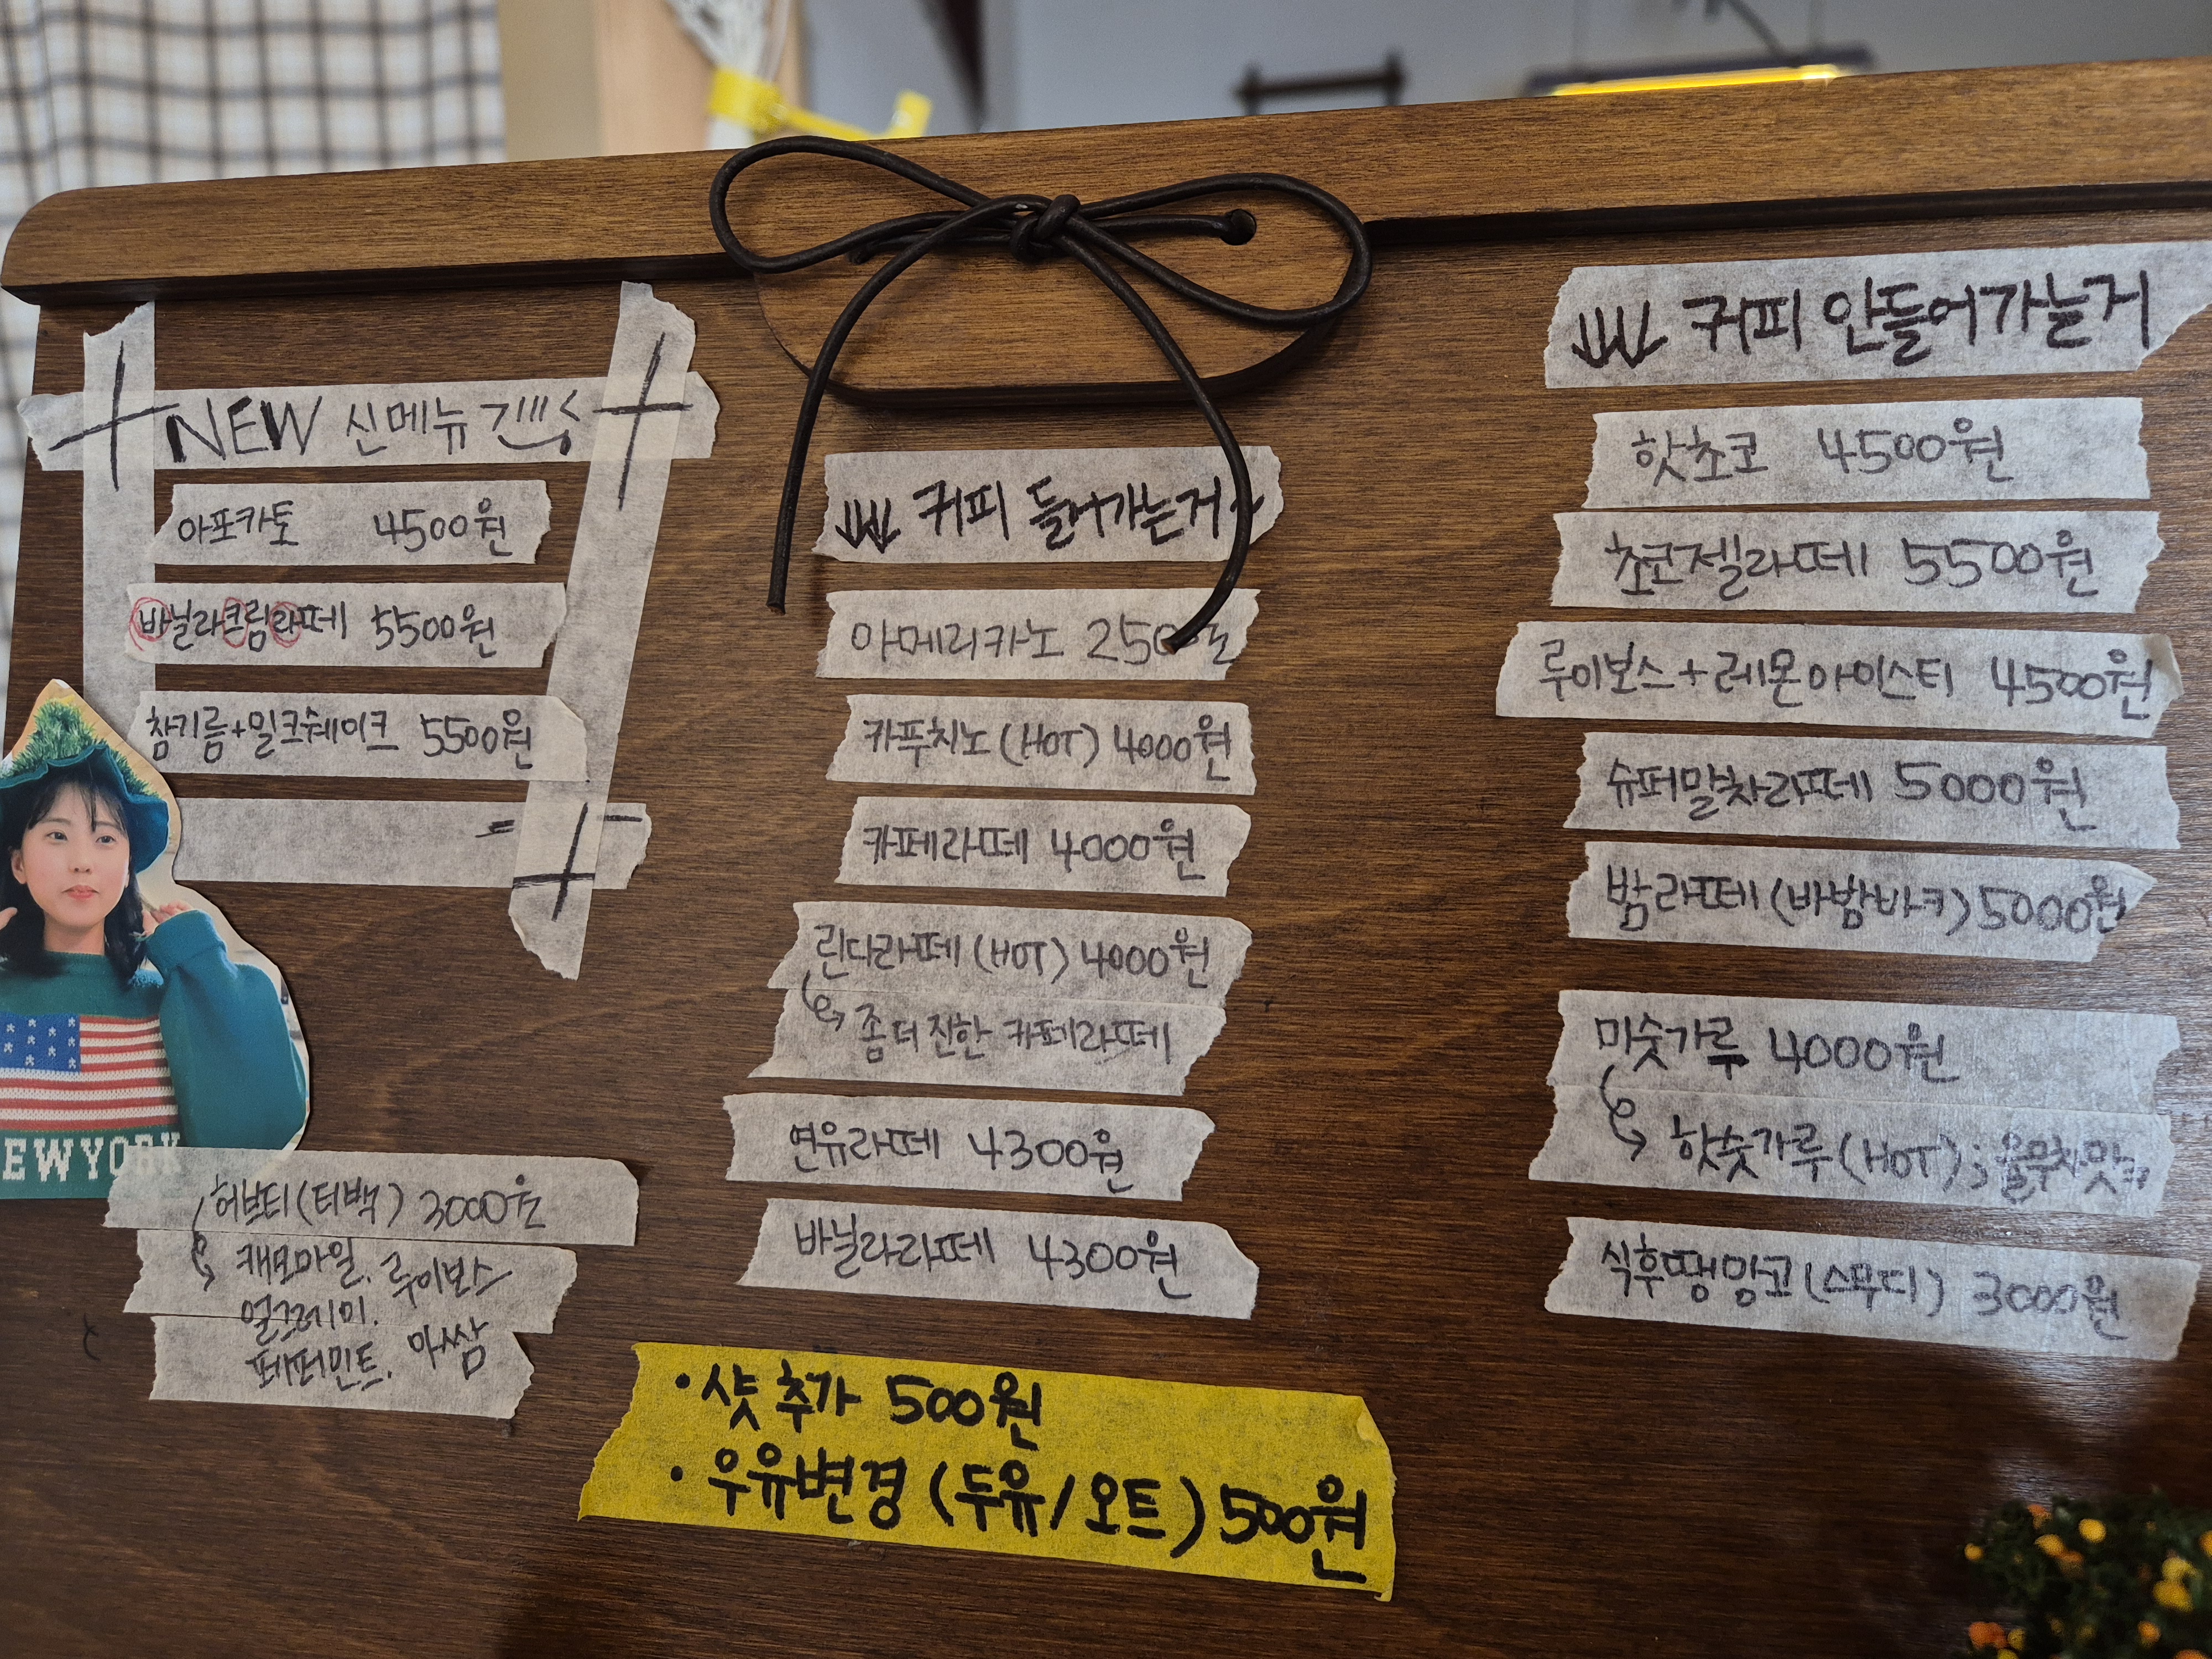 NEW 신메뉴
아포카토 4500원
바닐라크림라떼 5500원
참기름+밀크쉐이크 5500원
EWYORK
허브티(티백) 3000원
캐모마일. 루이보스
얼그레이.
페퍼민트. 아쌈
커피 들어가는거
아메리카노 250
카푸치노(HOT) 4000원
카페라떼 4000원
린다라떼(HOT) 4000원
좀 더 진한 카페라떼
연유라떼 4300원
바닐라라떼 4300원
커피 안들어가는거
핫초코 4500원
초코젤라떼 5500원
루이보스+레몬아이스티 4500원
슈퍼말차라떼 5000원
밤라떼(바밤바ㅋ) 5000원
미숫가루 4000원
핫숫가루(HOT); 율무차맛ㅋ
식후땡망고(스무디) 3000원
• 샷 추가 500원
• 우유변경 (두유/오트) 500원